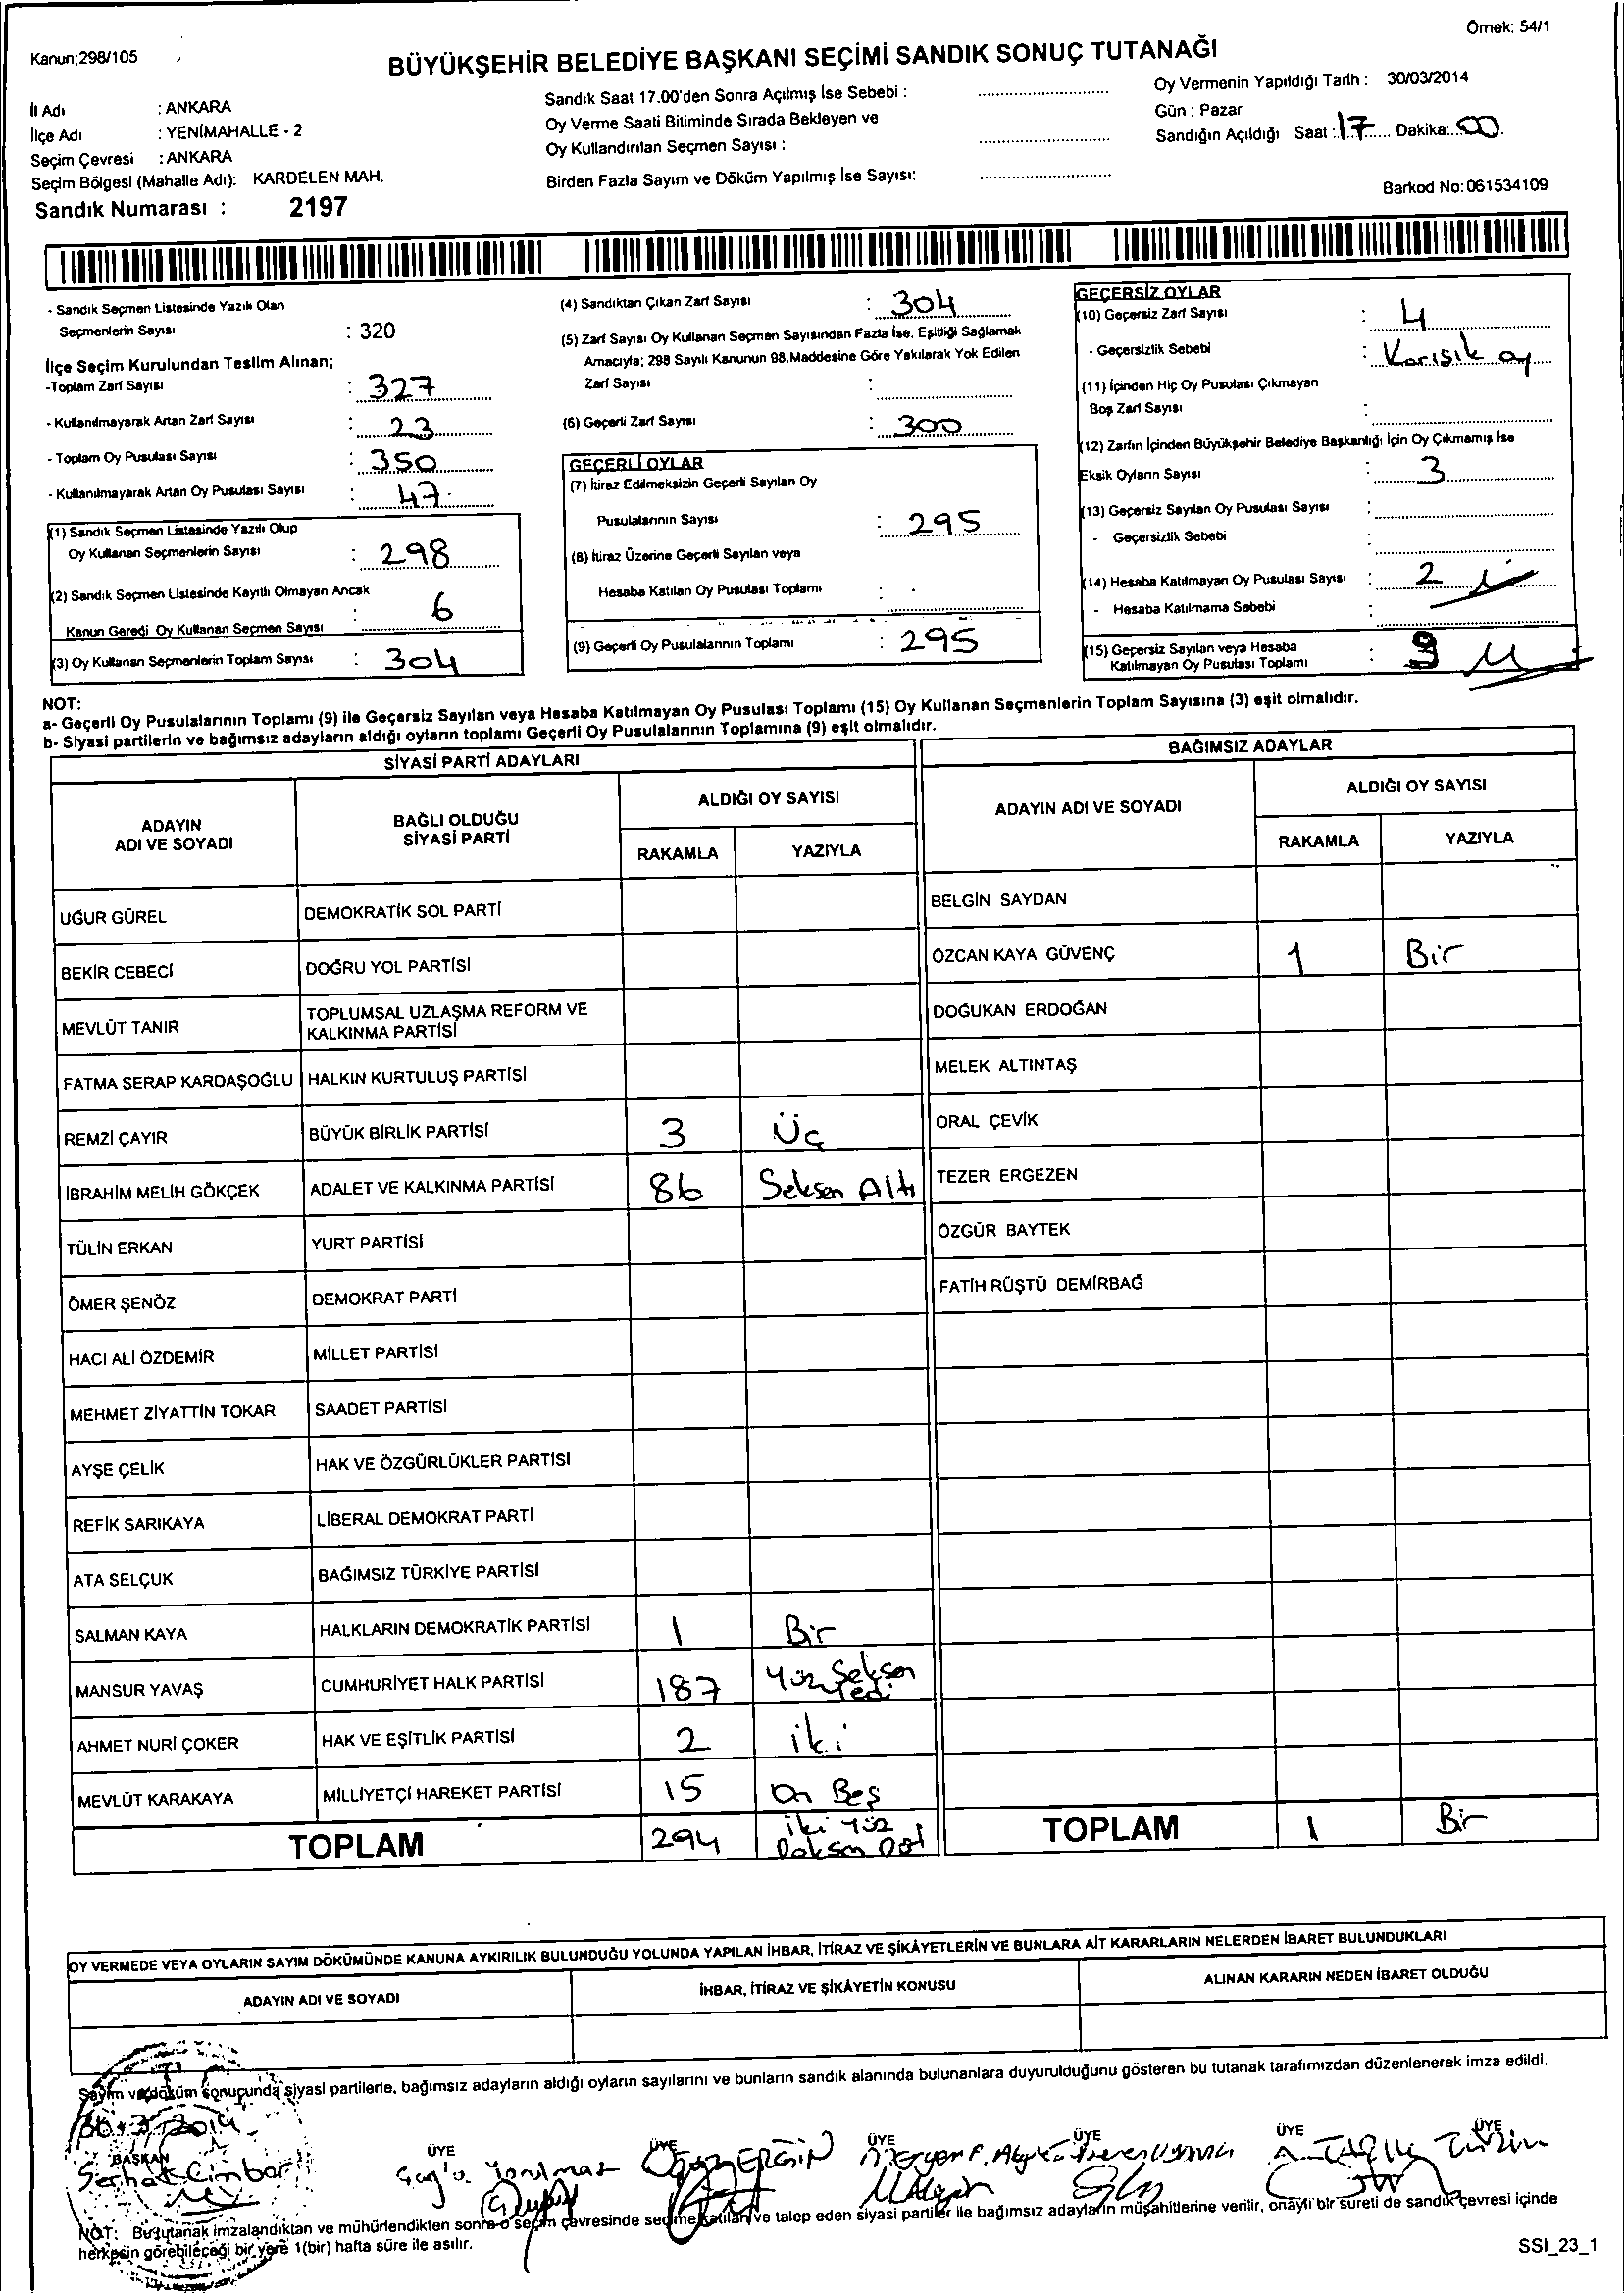 Örnek: 54/1
Kanun;298/105
BÜYÜKŞEHİR BELEDİYE BAŞKANI SEÇİMİ SANDIK SONUÇ TUTANAĞI
İl Adı : ANKARA
İlçe Adı : YENİMAHALLE - 2
Seçim Çevresi : ANKARA
Seçim Bölgesi (Mahalle Adı): KARDELEN MAH.
Sandık Numarası : 2197
Sandık Saat 17.00'den Sonra Açılmış İse Sebebi :
Oy Verme Saati Bitiminde Sırada Bekleyen ve
Oy Kullandırılan Seçmen Sayısı :
Birden Fazla Sayım ve Döküm Yapılmış İse Sayısı:
Oy Vermenin Yapıldığı Tarih : 30/03/2014
Gün : Pazar
Sandığın Açıldığı Saat : 17 Dakika: 00
Barkod No: 061534109
- Sandık Seçmen Listesinde Yazılı Olan
Seçmenlerin Sayısı : 320
İlçe Seçim Kurulundan Teslim Alınan;
-Toplam Zarf Sayısı : 327
- Kullanılmayarak Artan Zarf Sayısı : 23
- Toplam Oy Pusulası Sayısı : 350
- Kullanılmayarak Artan Oy Pusulası Sayısı : 47
(1) Sandık Seçmen Listesinde Yazılı Olup
Oy Kullanan Seçmenlerin Sayısı : 298
(2) Sandık Seçmen Listesinde Kayıtlı Olmayan Ancak
Kanun Gereği Oy Kullanan Seçmen Sayısı : 6
(3) Oy Kullanan Seçmenlerin Toplam Sayısı : 304
(4) Sandıktan Çıkan Zarf Sayısı : 304
(5) Zarf Sayısı Oy Kullanan Seçmen Sayısından Fazla İse, Eşitliği Sağlamak
Amacıyla; 298 Sayılı Kanunun 98.Maddesine Göre Yakılarak Yok Edilen
Zarf Sayısı :
(6) Geçerli Zarf Sayısı : 300
GEÇERLİ OYLAR
(7) İtiraz Edilmeksizin Geçerli Sayılan Oy
Pusulalarının Sayısı : 295
(8) İtiraz Üzerine Geçerli Sayılan veya
Hesaba Katılan Oy Pusulası Toplamı :
(9) Geçerli Oy Pusulalarının Toplamı : 295
GEÇERSİZ OYLAR
(10) Geçersiz Zarf Sayısı : 4
- Geçersizlik Sebebi : Karışık oy
(11) İçinden Hiç Oy Pusulası Çıkmayan
Boş Zarf Sayısı :
(12) Zarfın İçinden Büyükşehir Belediye Başkanlığı İçin Oy Çıkmamış İse
Eksik Oyların Sayısı : 3
(13) Geçersiz Sayılan Oy Pusulası Sayısı :
- Geçersizlik Sebebi :
(14) Hesaba Katılmayan Oy Pusulası Sayısı : 2
- Hesaba Katılmama Sebebi :
(15) Geçersiz Sayılan veya Hesaba
Katılmayan Oy Pusulası Toplamı : 9
NOT:
a- Geçerli Oy Pusulalarının Toplamı (9) ile Geçersiz Sayılan veya Hesaba Katılmayan Oy Pusulası Toplamı (15) Oy Kullanan Seçmenlerin Toplam Sayısına (3) eşit olmalıdır.
b- Siyasi partilerin ve bağımsız adayların aldığı oyların toplamı Geçerli Oy Pusulalarının Toplamına (9) eşit olmalıdır.
SİYASİ PARTİ ADAYLARI
ADAYIN ADI VE SOYADI BAĞLI OLDUĞU SİYASİ PARTİ ALDIĞI OY SAYISI
RAKAMLA YAZIYLA
UĞUR GÜREL DEMOKRATİK SOL PARTİ
BEKİR CEBECİ DOĞRU YOL PARTİSİ
MEVLÜT TANIR TOPLUMSAL UZLAŞMA REFORM VE KALKINMA PARTİSİ
FATMA SERAP KARDAŞOĞLU HALKIN KURTULUŞ PARTİSİ
REMZİ ÇAYIR BÜYÜK BİRLİK PARTİSİ 3 Üç
İBRAHİM MELİH GÖKÇEK ADALET VE KALKINMA PARTİSİ 86 Seksen Altı
TÜLİN ERKAN YURT PARTİSİ
ÖMER ŞENÖZ DEMOKRAT PARTİ
HACI ALİ ÖZDEMİR MİLLET PARTİSİ
MEHMET ZİYATTİN TOKAR SAADET PARTİSİ
AYŞE ÇELİK HAK VE ÖZGÜRLÜKLER PARTİSİ
REFİK SARIKAYA LİBERAL DEMOKRAT PARTİ
ATA SELÇUK BAĞIMSIZ TÜRKİYE PARTİSİ
SALMAN KAYA HALKLARIN DEMOKRATİK PARTİSİ 1 Bir
MANSUR YAVAŞ CUMHURİYET HALK PARTİSİ 187 Yüz Seksen Yedi
AHMET NURİ ÇOKER HAK VE EŞİTLİK PARTİSİ 2 iki
MEVLÜT KARAKAYA MİLLİYETÇİ HAREKET PARTİSİ 15 On Beş
TOPLAM 294 iki yüz Doksan Dört
BAĞIMSIZ ADAYLAR
ADAYIN ADI VE SOYADI ALDIĞI OY SAYISI
RAKAMLA YAZIYLA
BELGİN SAYDAN
ÖZCAN KAYA GÜVENÇ 1 Bir
DOĞUKAN ERDOĞAN
MELEK ALTINTAŞ
ORAL ÇEVİK
TEZER ERGEZEN
ÖZGÜR BAYTEK
FATİH RÜŞTÜ DEMİRBAĞ
TOPLAM 1 Bir
OY VERMEDE VEYA OYLARIN SAYIM DÖKÜMÜNDE KANUNA AYKIRILIK BULUNDUĞU YOLUNDA YAPILAN İHBAR, İTİRAZ VE ŞİKÂYETLERİN VE BUNLARA AİT KARARLARIN NELERDEN İBARET BULUNDUKLARI
ADAYIN ADI VE SOYADI İHBAR, İTİRAZ VE ŞİKÂYETİN KONUSU ALINAN KARARIN NEDEN İBARET OLDUĞU
Sayım ve döküm sonucunda siyasi partilerle, bağımsız adayların aldığı oyların sayılarını ve bunların sandık alanında bulunanlara duyurulduğunu gösteren bu tutanak tarafımızdan düzenlenerek imza edildi.
30.3.2014
BAŞKAN ÜYE ÜYE ÜYE ÜYE ÜYE ÜYE
NOT: Bu tutanak imzalandıktan ve mühürlendikten sonra o seçim çevresinde seçime katılan ve talep eden siyasi partiler ile bağımsız adayların müşahitlerine verilir, onaylı bir sureti de sandık çevresi içinde
herkesin görebileceği bir yere 1(bir) hafta süre ile asılır.
SSI_23_1